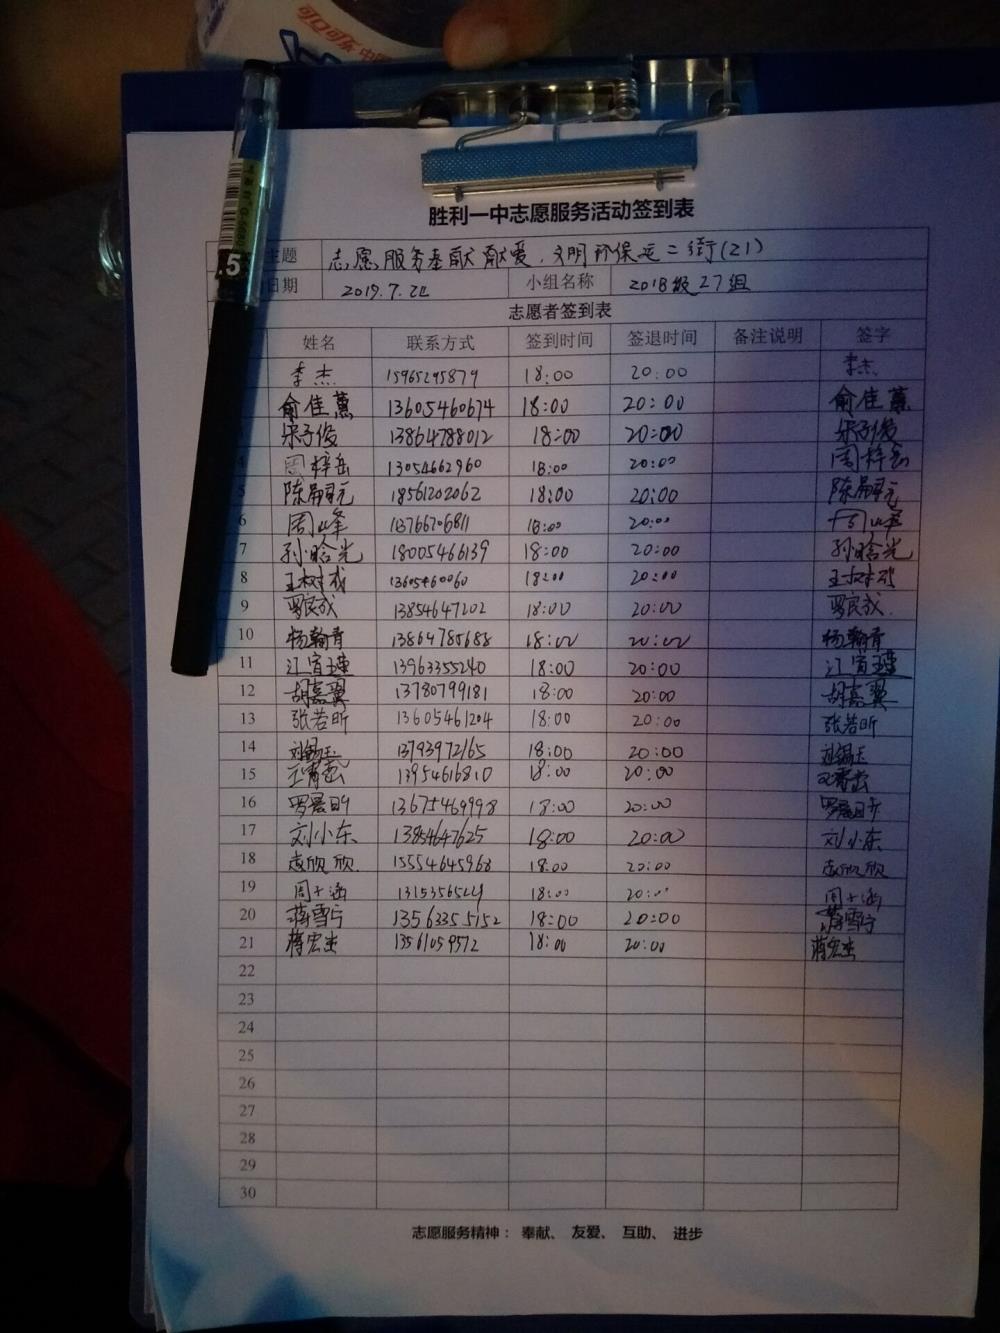 可口可乐 中国
胜利一中志愿服务活动签到表
主题 志愿服务奉献献爱,文明环保运二街(21)
日期 2019.7.24 小组名称 2018级27组
志愿者签到表
姓名 联系方式 签到时间 签退时间 备注说明 签字
李杰 15965295879 18:00 20:00 李杰
俞佳蕙 13605460674 18:00 20:00 俞佳蕙
宋子俊 13864788012 18:00 20:00 宋子俊
4 周梓岳 13054662960 18:00 20:00 周梓岳
5 陈 18561202062 18:00 20:00 陈
6 周峰 13766706811 18:00 20:00 周峰
7 孙晗光 18005466139 18:00 20:00 孙晗光
8 王树成 13605460060 18:00 20:00 王树成
9 罗良成 13854647202 18:00 20:00 罗良成
10 杨翰青 13864785688 18:00 20:00 杨翰青
11 江宜瑾 13963355240 18:00 20:00 江宜瑾
12 胡嘉翼 13780799181 18:00 20:00 胡嘉翼
13 张若昕 13605461204 18:00 20:00 张若昕
14 刘锡玉 13793972165 18:00 20:00 刘锡玉
15 王霄 13954616810 18:00 20:00 王霄
16 罗晨昕 13675469998 18:00 20:00 罗晨昕
17 刘小东 13854647625 18:00 20:00 刘小东
18 欣欣 15554645968 18:00 20:00 欣欣
19 周子涵 18:00 20:00 周子涵
20 蒋雪宁 13563355152 18:00 20:00 蒋雪宁
21 蒋宏 13561059572 18:00 20:00 蒋宏
22
23
24
25
26
27
28
29
30
志愿服务精神: 奉献、 友爱、 互助、 进步